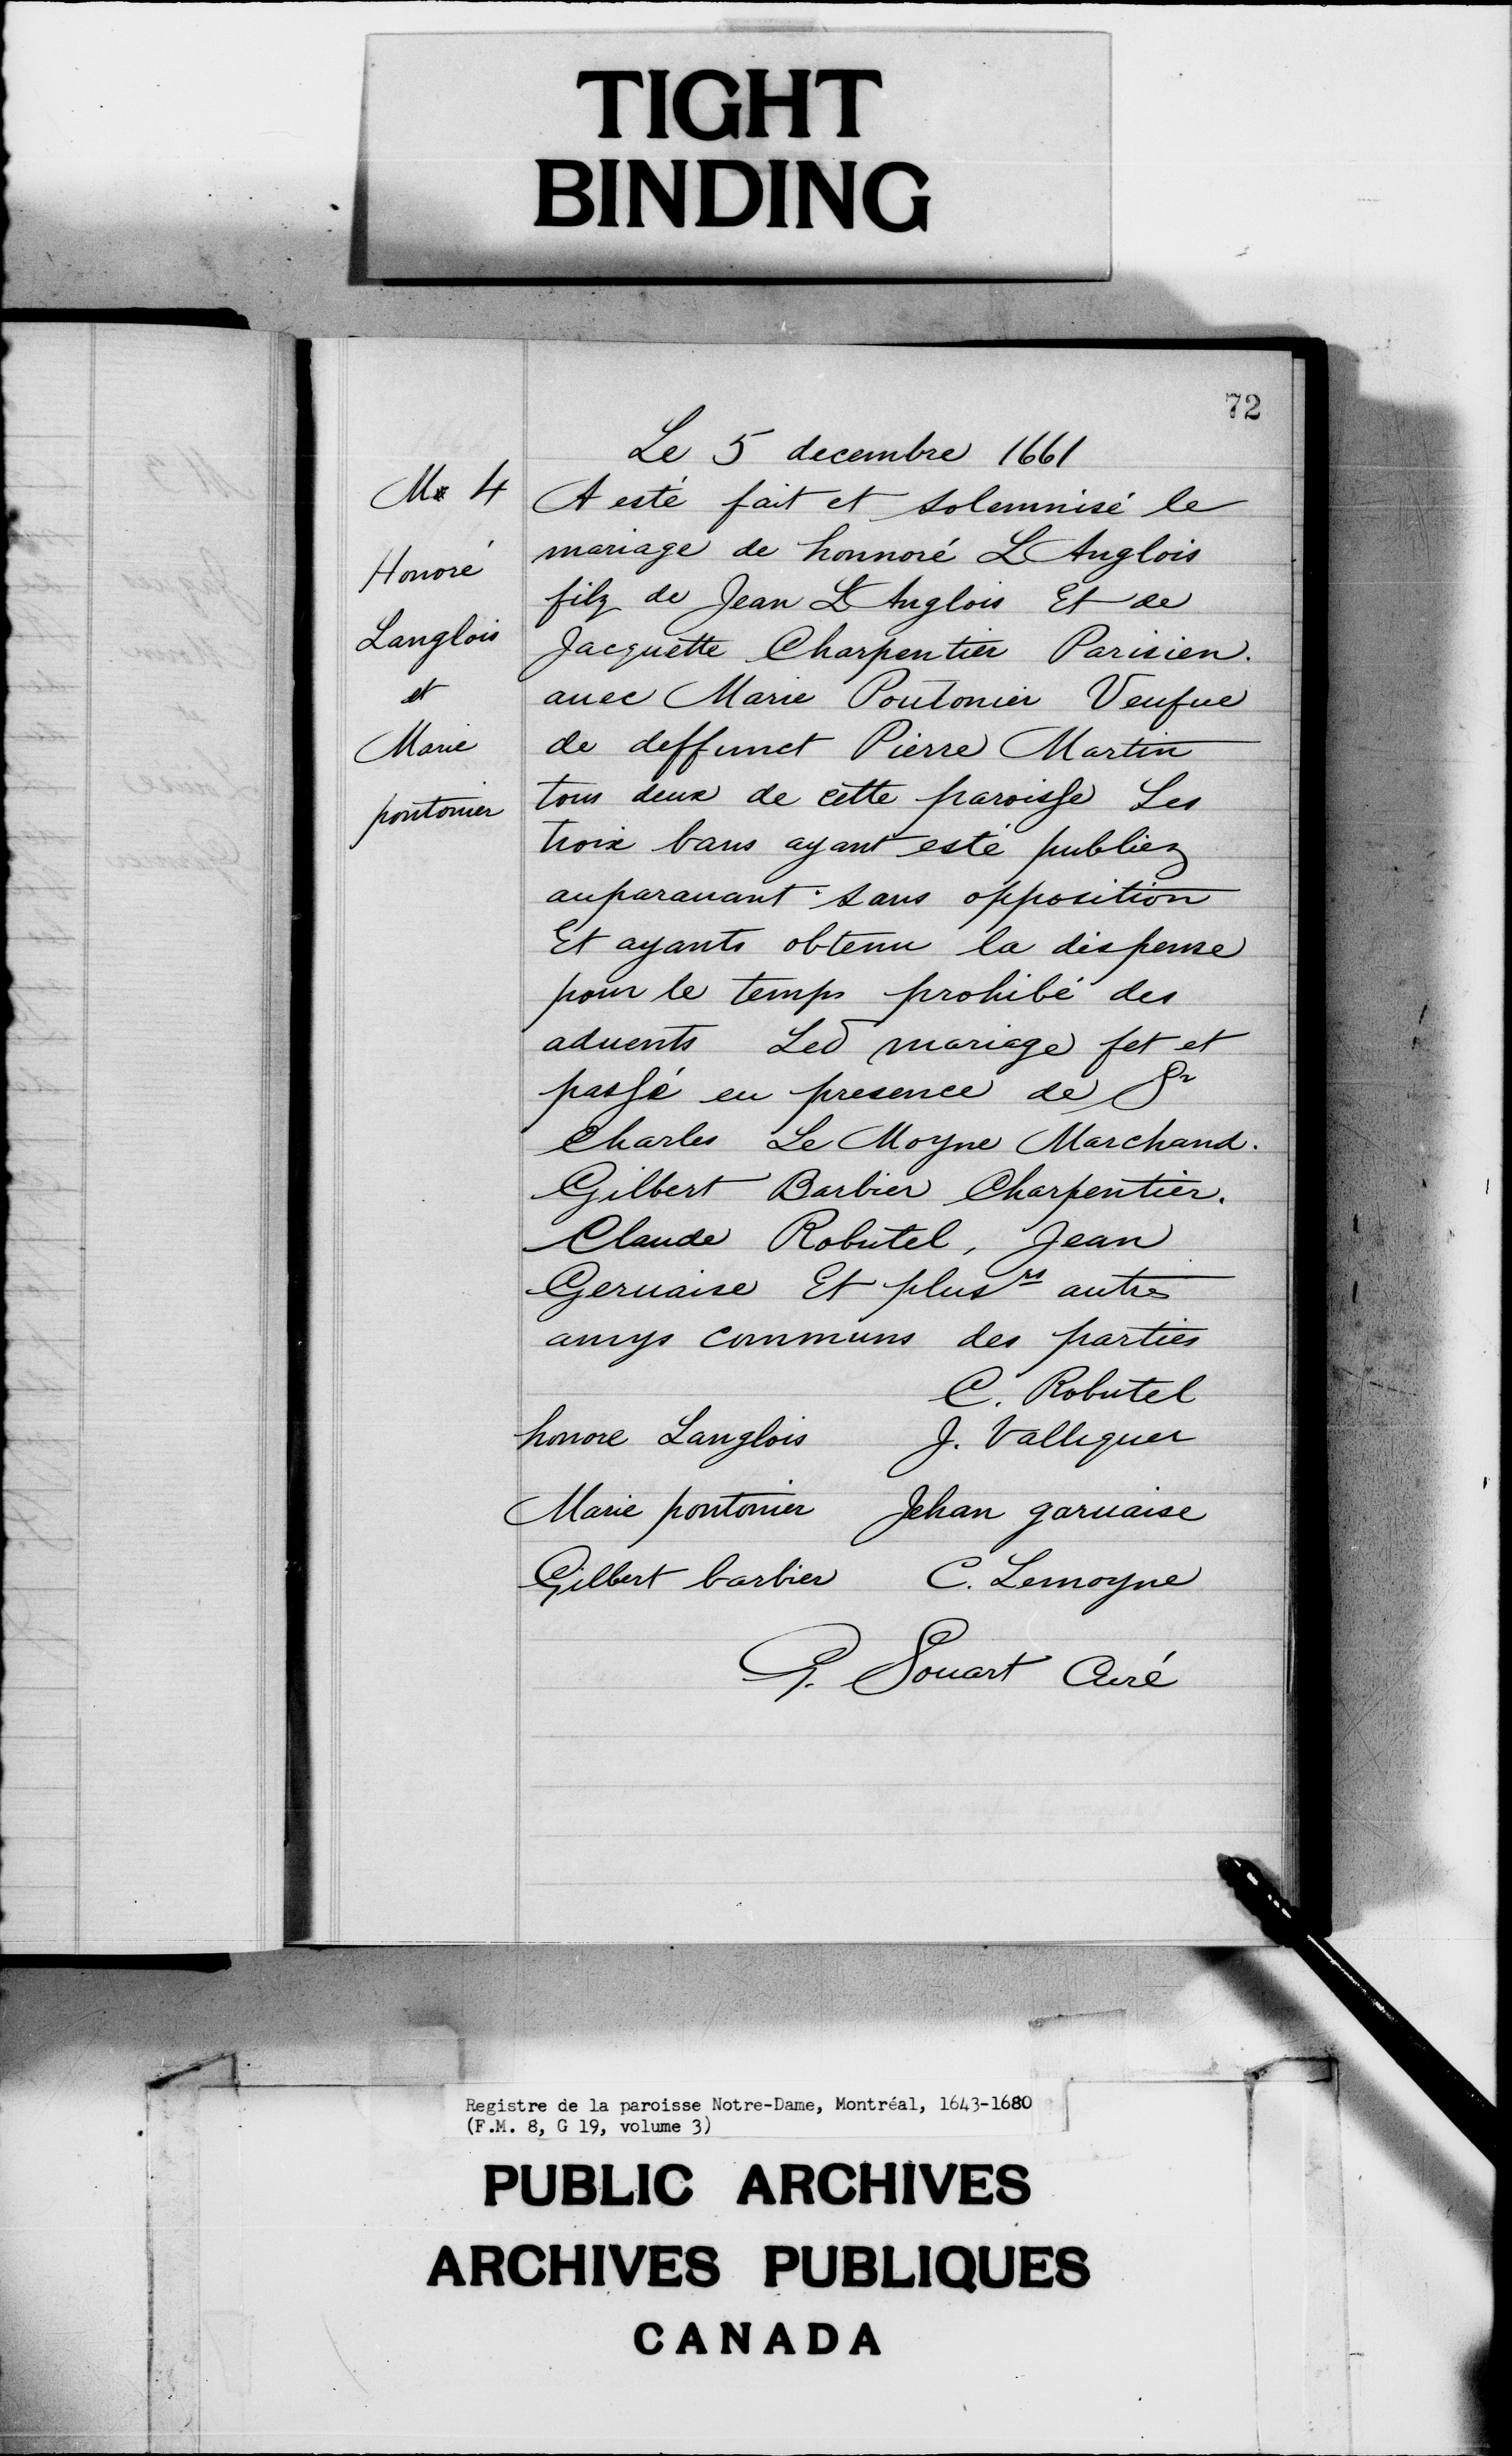 TIGHT
BINDING
72
Le 5 decembre 1661
M 4
Honoré
Langlois
et
Marie
pontonier
A esté fait et solemnisé le
mariage de honnoré L'Anglois
filz de Jean L'Anglois Et de
Jacquette Charpentier Parisien.
auec Marie Pontonier Veufue
de deffunct Pierre Martin
tous deux de cette paroisse Les
trois bans ayant esté publiez
auparauant sans opposition
Et ayants obtenu la dispense
pour le temps prohibé des
aduents Led mariage fet et
passé en presence de Sr
Charles Le Moyne Marchand.
Gilbert Barbier Charpentier.
Claude Robutel, Jean
Geruaise Et plusrs autres
amys communs des parties
C. Robutel
honore Langlois J. Valliquer
Marie pontonier Jehan garuaise
Gilbert barbier C. Lemoyne
G. Souart Curé
Registre de la paroisse Notre-Dame, Montréal, 1643-1680
(F.M. 8, G 19, volume 3)
PUBLIC ARCHIVES
ARCHIVES PUBLIQUES
CANADA